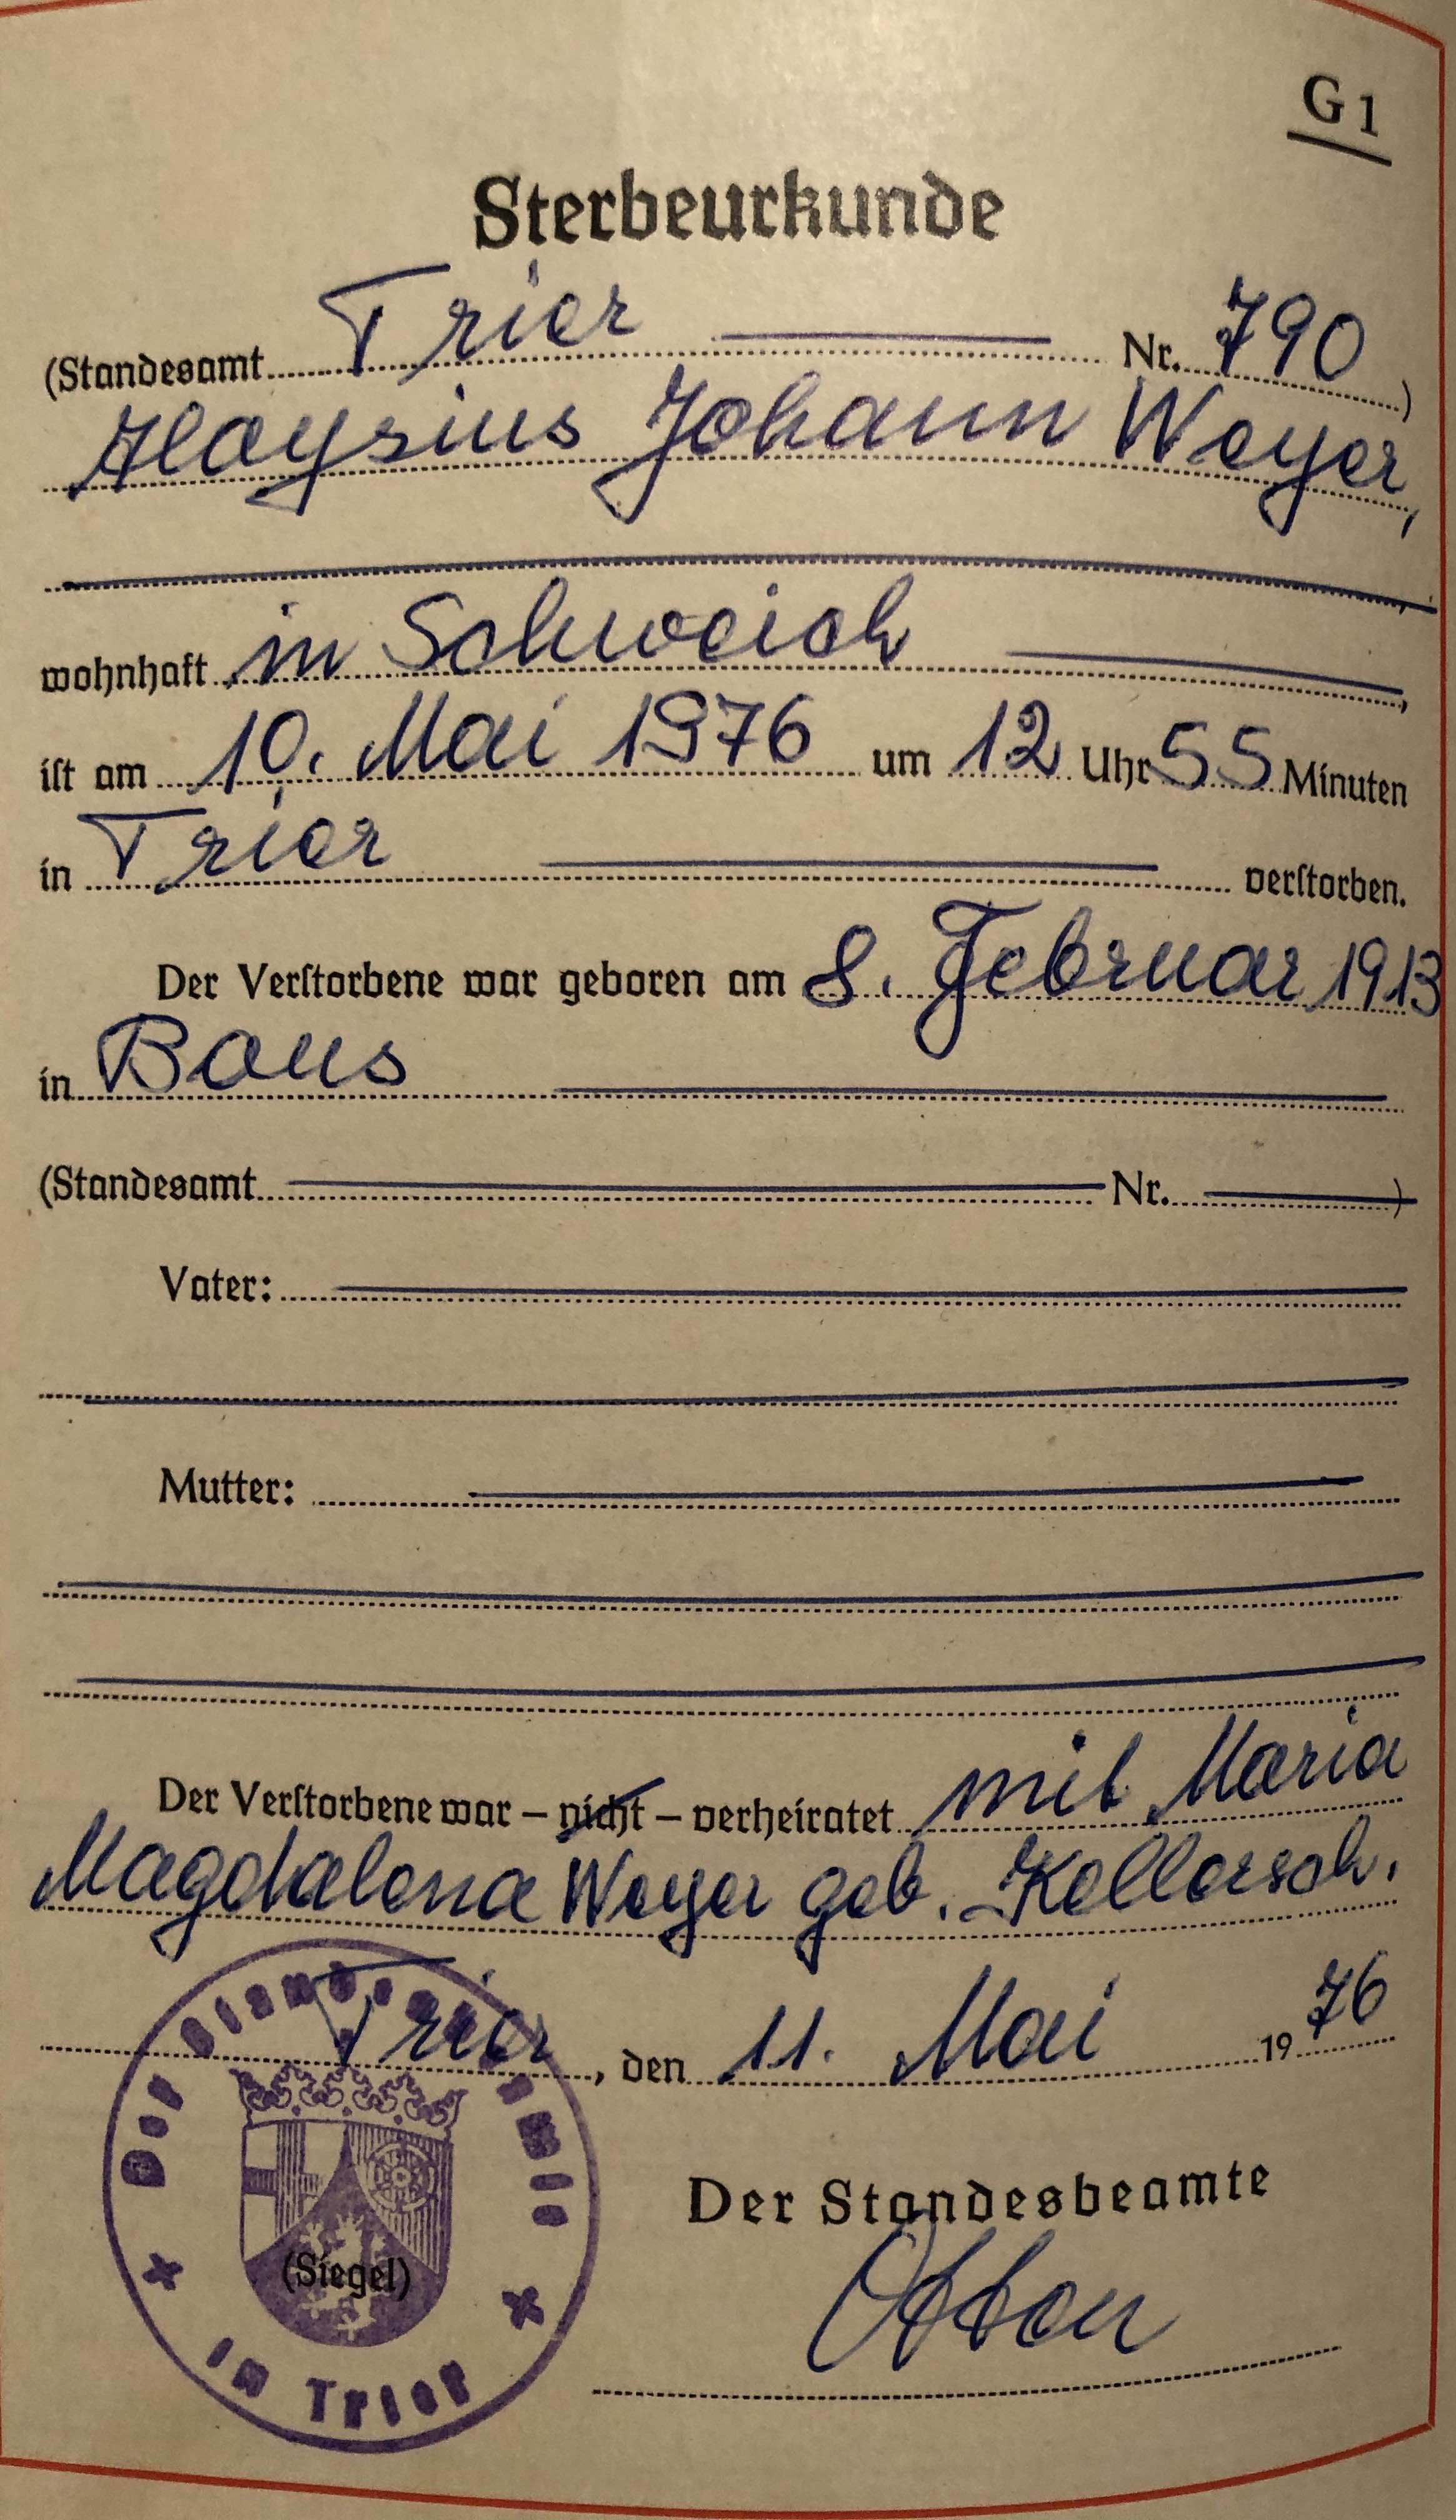 G1
Sterbeurkunde
(Standesamt Trier Nr. 790)
Aloysius Johann Weyer,
wohnhaft in Schweich,
ist am 10. Mai 1976 um 12 Uhr 55 Minuten
in Trier verstorben.
Der Verstorbene war geboren am 8. Februar 1913
in Bous
(Standesamt Nr. )
Vater:
Mutter:
Der Verstorbene war – nicht – verheiratet mit Maria
Magdalena Weyer geb. Kellersch.
Trier, den 11. Mai 1976
Der Standesbeamte
(Siegel)
Der Standesbeamte
in Trier